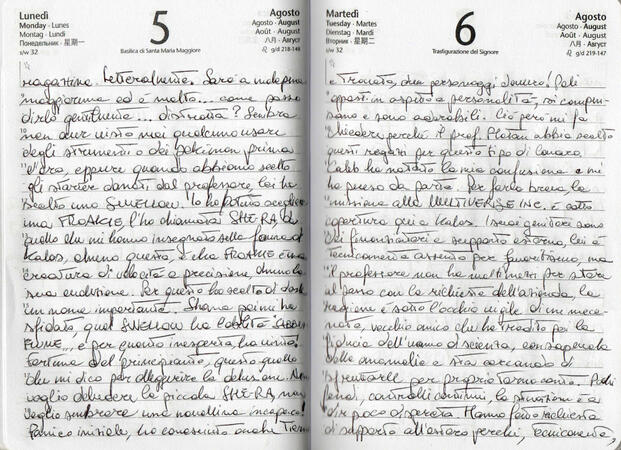 Lunedì
Monday - Lunes
Montag - Lundi
Понедельник - 星期一
s/w 32
5
Basilica di Santa Maria Maggiore
Agosto
Agosto - August
Août - August
八月 - Август
g/d 218-148
ragazzine. Letteralmente. Sarò a malapena
maggiorenne ed è molto... come posso
dirlo gentilmente... distratta? Sembra
non aver visto mai qualcuno usare
degli strumenti o dei pokémon prima
d'ora, eppure quando abbiamo scelto
gli starter donati dal professore, lei ha
scelto uno SWELLOW. Io ho potuto scegliere
una FROAKIE, l'ho chiamata SHE-RA, da
quello che mi hanno insegnato sulla fauna di
Kalos, almeno questo, è che FROAKIE è una
creatura di velocità e precisione, almeno la
sua evoluzione. Per questo ho scelto di darle
un nome importante. Shana poi mi ha
sfidato, quel SWELLOW ha l'abilità
e per quanto inesperta, ha vinto!
Fortuna del principiante, questo quello
che mi dico per alleggerire la delusione. Non
voglio deludere la piccola SHE-RA, non
voglio sembrare una novellina incapace!
Panico iniziale, ho conosciuto anche Tierno
Martedì
Tuesday - Martes
Dienstag - Mardi
Вторник - 星期二
s/w 32
6
Trasfigurazione del Signore
Agosto
Agosto - August
Août - August
八月 - Август
g/d 219-147
e Trovato, due personaggi davvero! Poli
opposti in aspetto e personalità, si compen-
sano e sono adorabili. Ciò però mi fa
chiedere perché il prof. Platan abbia scelto
questi ragazzi per questo tipo di lavoro.
ha notato la mia confusione e mi
ha preso da parte. Per farla breve, la
missione alla MULTIVERSE INC. è sotto
copertura qui a Kalos. I suoi genitori sono
dei finanziatori e supporto esterno, lei è
tecnicamente assunta per finanziarmi, ma
il professore non ha molti mezzi per stare
al passo con le richieste dell'azienda, la
regione è sotto l'occhio vigile di un mece-
nate, vecchio amico che ha tradito poi la
fiducia dell'uomo di scienza, consapevole
delle anomalie e sta cercando di
sfruttarle per proprio tornaconto. Pochi
fondi, controlli continui, la situazione è a
dir poco disperata. Hanno fatto richiesta
di supporto all'estero perché, tecnicamente,